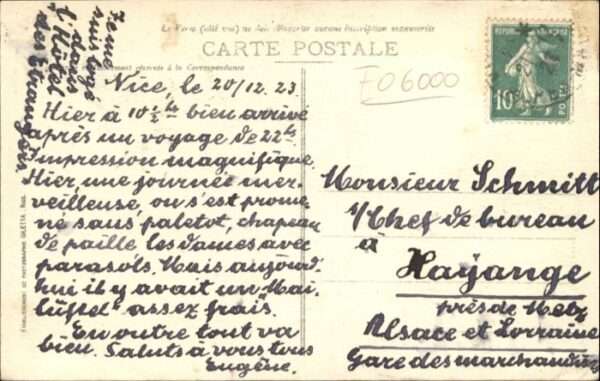 Le Verso (côté vue) ne doit comporter aucune inscription manuscrite
CARTE POSTALE
réservée à la Correspondance
FO6000
RÉPUBLIQUE FRANÇAISE
10
POSTES
Je me
suis logé
dans
l'Hôtel
des Etrangers.
Nice, le 20/12.23
Hier à 10 ½ h bien arrivé
après un voyage de 22 hs.
Impression magnifique.
Hier, une journée mer-
veilleuse, ou s'est prome-
né sans paletot, chapeau
de paille, les dames avec
parasols. Mais aujourd'
hui il y avait un "Mai-
lüftel" assez frais.
En outre tout va
bien. Saluts à vous tous
Eugène.
Monsieur Schmitt
s/Chef de bureau
à
Hayange
près de Metz
Alsace et Lorraine
Gare des marchandises
ÉTABLISSEMENT DE PHOTOGRAPHIE GILETTA, NICE.